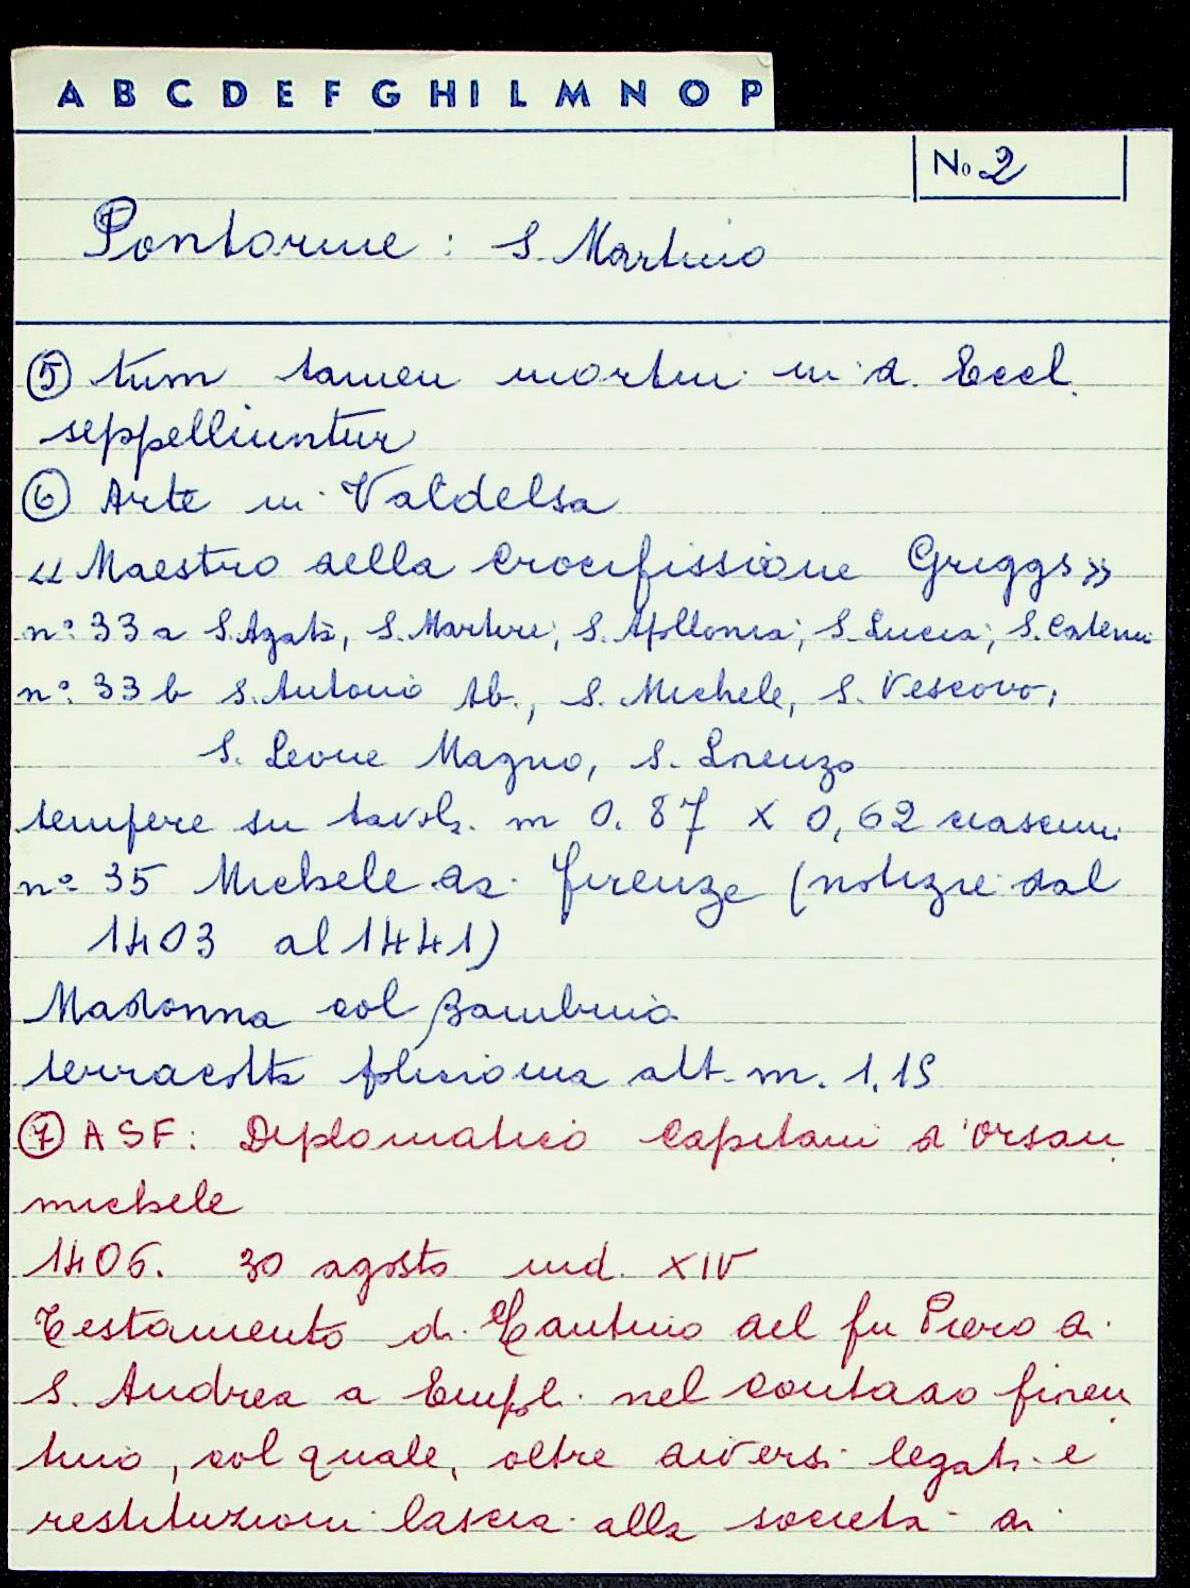 A B C D E F G H I L M N O P
No 2
Pontorme : S. Martino
⑤ tum tamen mortui in d. Eccl.
seppelliuntur
⑥ Arte in Valdelsa
« Maestro della Crocifissione Griggs »
n° 33 a S. Agata, S. Martire, S. Apollonia, S. Lucia, S. Caterin
n° 33 b S. Antonio Ab., S. Michele, S. Vescovo,
S. Leone Magno, S. Lorenzo
tempere su tavola m 0.87 x 0,62 ciascuni
n° 35 Michele da Firenze (notizie dal
1403 al 1441)
Madonna col Bambino
terracotta policroma alt. m. 1.15
⑦ ASF: Diplomatico Capitani d'Orsan
michele
1406. 30 agosto ind. XIV
Testamento di del fu Piero di
S. Andrea a Empoli nel contado fioren
tino, col quale, oltre diversi legati e
restituzioni lascia alla società di